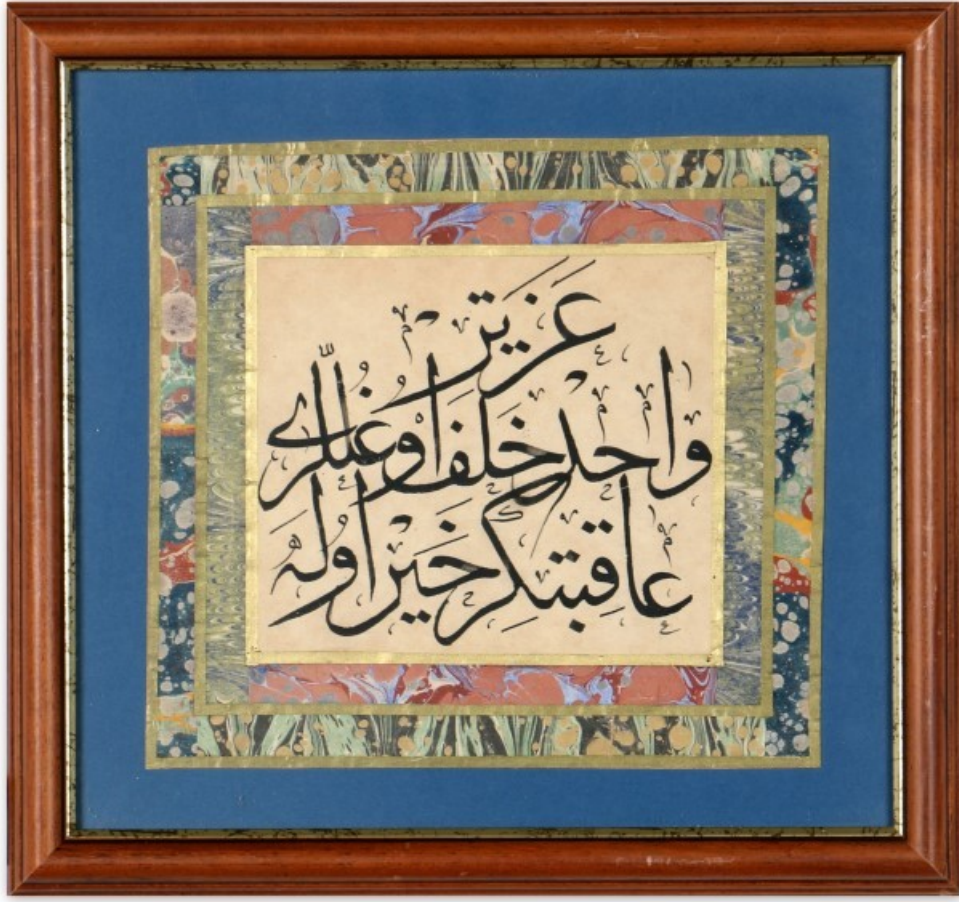 عزيز
واحد خلف اوغللرى
عاقبتكر خير اوله